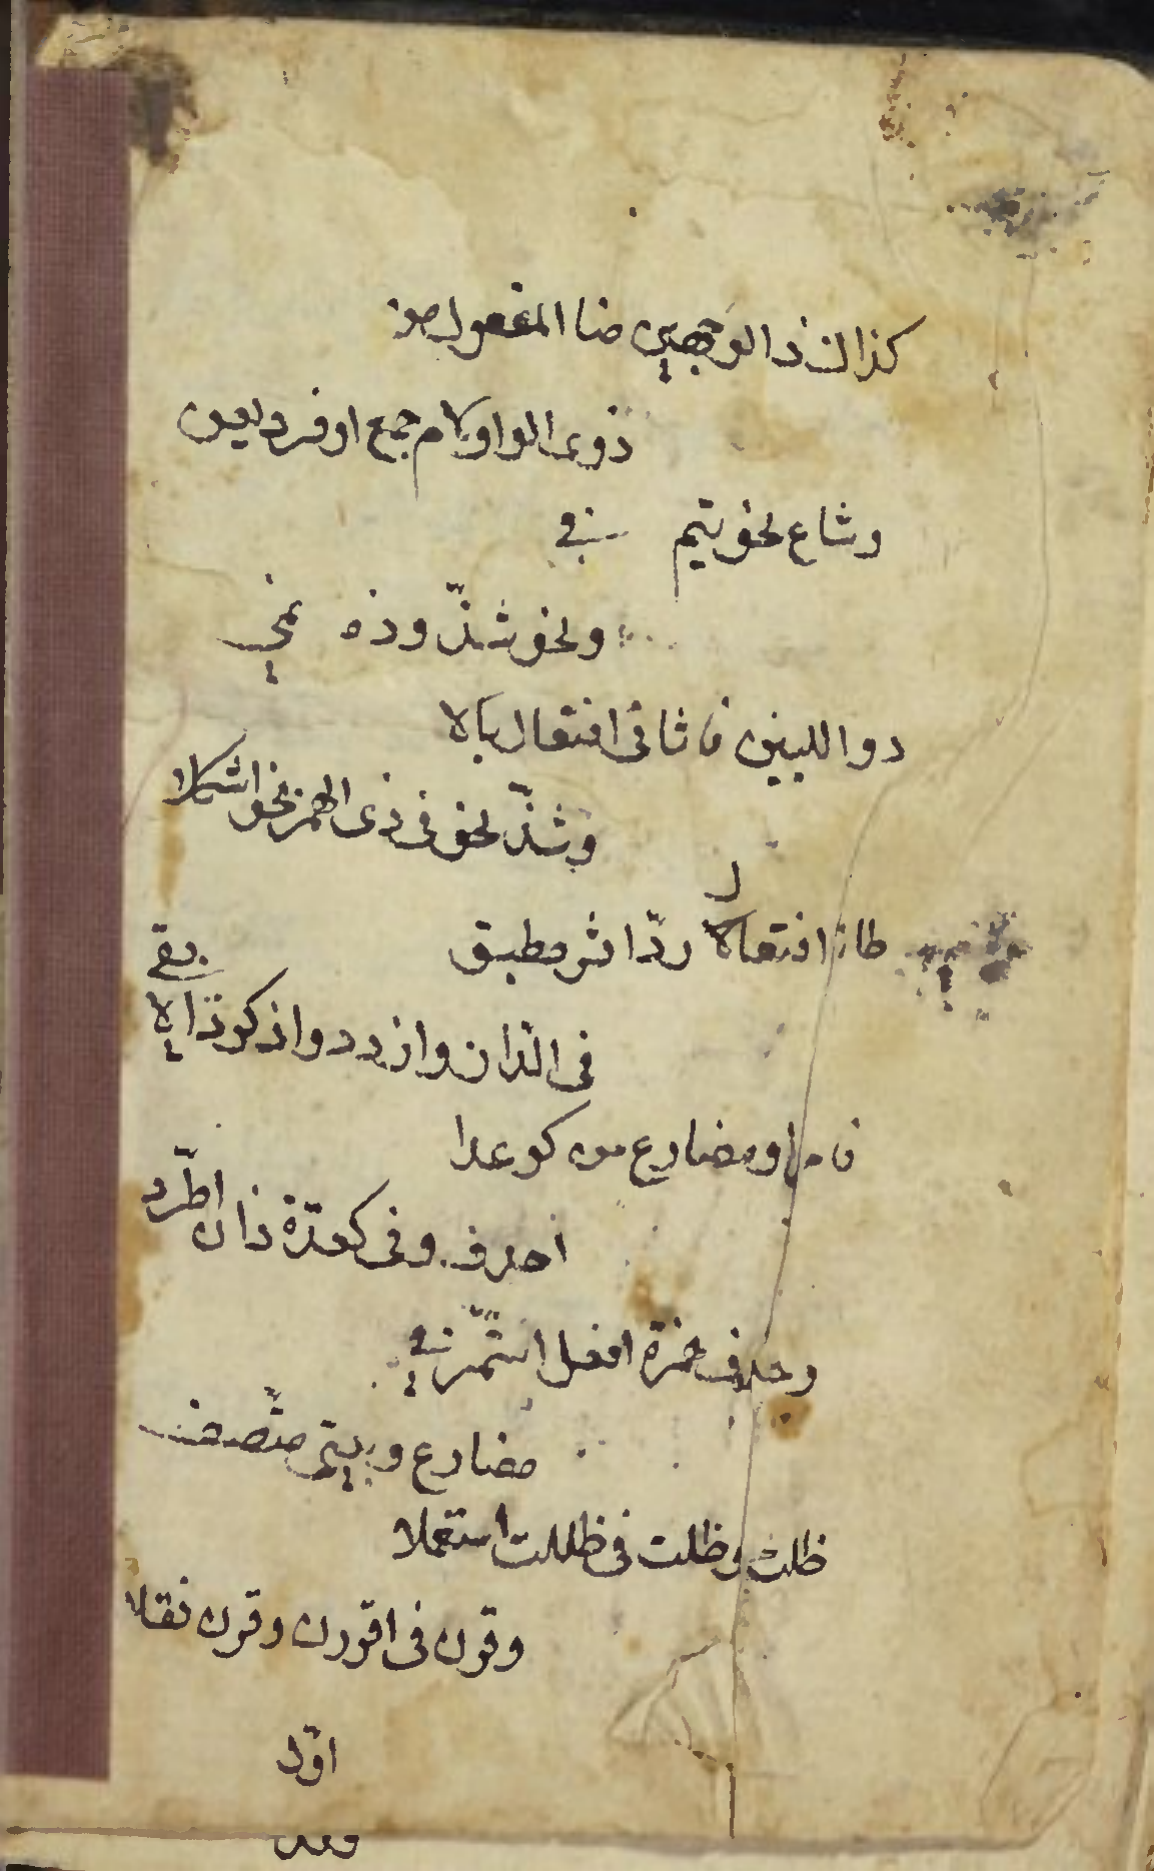 كذاك ذا الوجهين جا المفعول من
ذوى الواو لام جمع او فرد يعن
وشاع نحو نيم فى
ونحو شذوذه نمى
ذو اللين فا تا فى افتعال ابدلا
وشذ نحو فى ذى الهمز نحو ائتكلا
طا تا افتعال رد اثر مطبق
فى ادان وازدد وادكر دالا
بقى
فا امر او مضارع من كوعدا
احذف وفى كعدة ذاك اطرد
وحذف همزة افعل استمر فى
مضارع وبنيتى متصف
ظلت وظلت فى ظللت استعملا
وقرن فى اقررن وقرن نقلا
اول